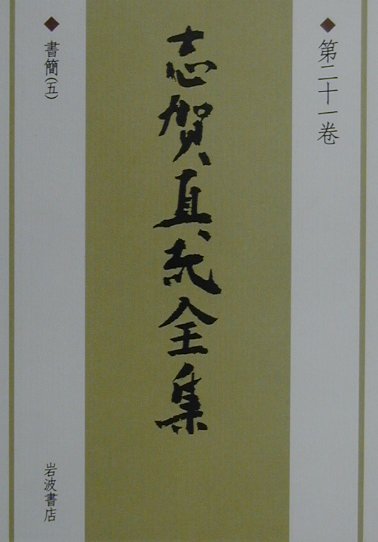 第二十一巻
志賀直哉全集
書簡(五)
岩波書店